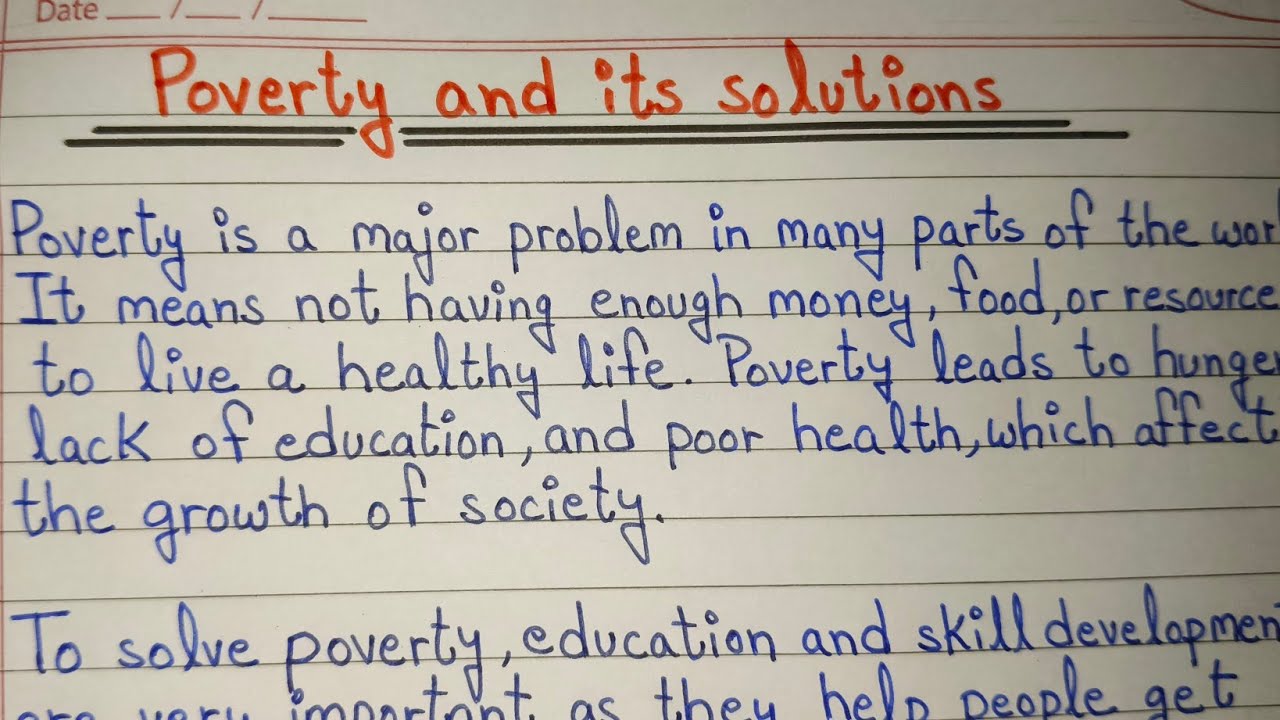 Date __/__/____
Poverty and its solutions
Poverty is a major problem in many parts of the wor
It means not having enough money, food, or resource
to live a healthy life. Poverty leads to hunge
lack of education, and poor health, which affect
the growth of society.
To solve poverty, education and skill developmen
are very important as they help people get